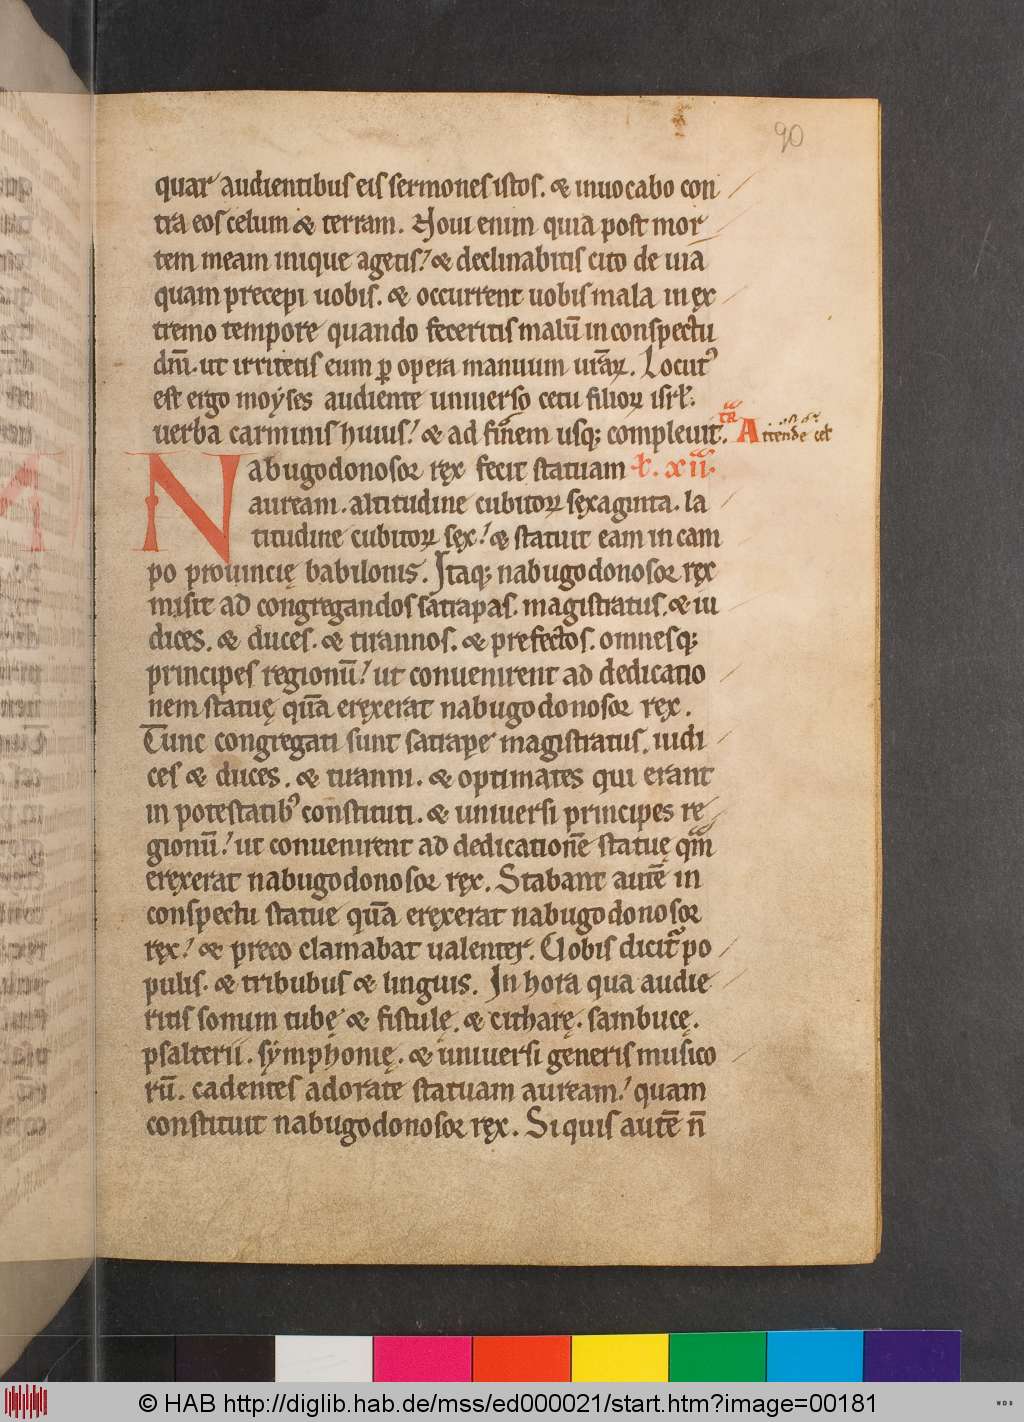 90
quar audientibus eis sermones istos. & inuocabo con
tra eos celum & terram. Noui enim quia post mor
tem meam inique agetis! & declinabitis cito de uia
quam precepi uobis. & occurrent uobis mala in ex
tremo tempore quando feceritis malū in conspectu
dn̄i. ut irritetis eum ꝑ opera manuum urāꝝ. Locutꝰ
est ergo moẏses audiente uniuerso cetu filioꝝ isrł.
uerba carminis huius! & ad finem usq; compleuit. TR Attende cel
Nabugodonosor ręx fecit statuam ł. xii.
auream. altitudine cubitoꝝ sexaginta. la
titudine cubitoꝝ sex! & statuit eam in cam
po prouincię babilonis. Itaq; nabugodonosor ręx
misit ad congregandos satrapas. magistratus. & iu
dices. & duces. & tirannos. & prefectos. omnesq;
principes regionū! ut conuenirent ad dedicatio
nem statuę quā eręxerat nabugodonosor ręx.
Tunc congregati sunt satrape magistratus. iudi
ces & duces. & tiranni. & optimates qui erant
in potestatibꝰ constituti. & uniuersi principes re
gionū! ut conuenirent ad dedicationē statuę qm̄
eręxerat nabugodonosor ręx. Stabant autē in
conspectu statue quā eręxerat nabugodonosor
ręx! & preco clamabat ualenter. Uobis dicit᷑ po
pulis. & tribubus & linguis. In hora qua audie
ritis sonum tubę & fistulę. & citharę. sambucę.
psalterii. sẏmphonię. & uniuersi generis musico
rū. cadentes adorate statuam auream! quam
constituit nabugodonosor ręx. Si quis autē n̄
© HAB http://diglib.hab.de/mss/ed000021/start.htm?image=00181